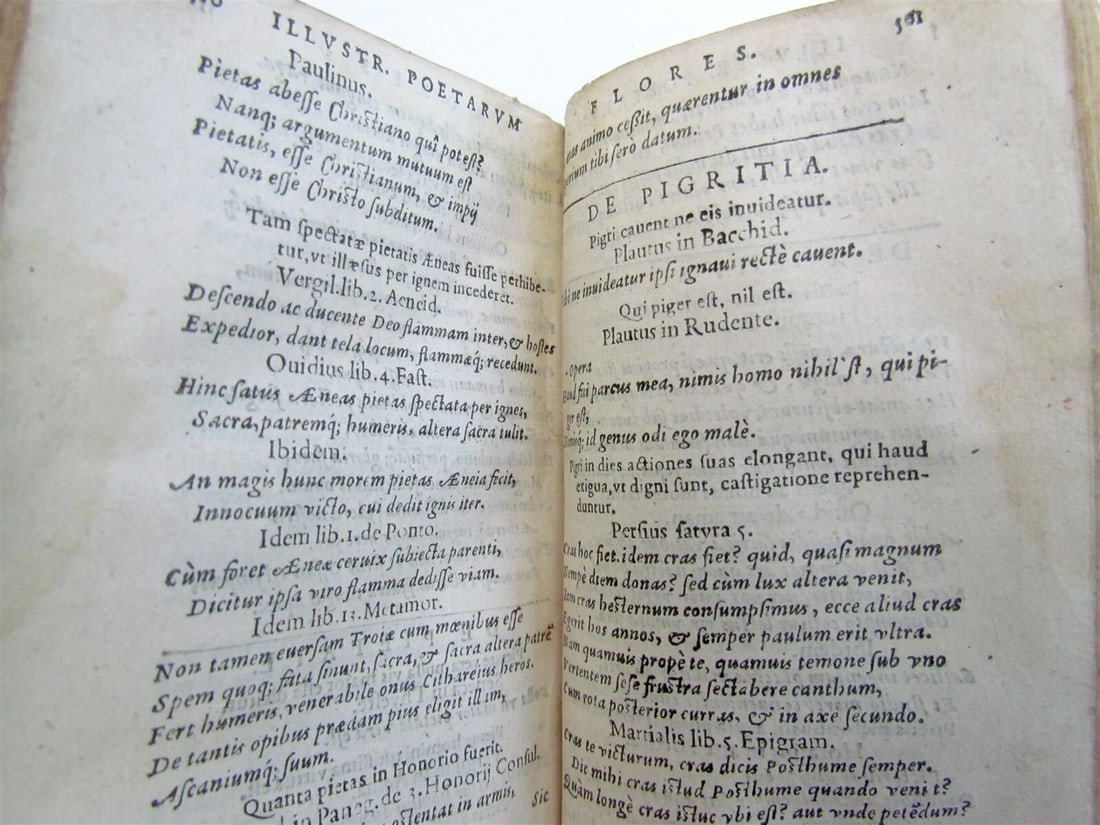 ILLVSTR. POETARVM
Paulinus.
Pietas abesse Christiano quî potest?
Nanq; argumentum mutuum est
Pietatis, esse Christianum, & impij
Non esse Christo subditum.
Tam spectatæ pietatis Æneas fuisse perhibe-
tur, vt illæsus per ignem incederet.
Vergil. lib. 2. Aeneid.
Descendo ac ducente Deo flammam inter, & hostes
Expedior, dant tela locum, flammæq; recedunt.
Ouidius lib. 4. Fast.
Hinc satus Æneas pietas spectata per ignes,
Sacra, patremq; humeris, altera sacra tulit.
Ibidem.
An magis hunc morem pietas Æneia fecit,
Innocuum victo, cui dedit ignis iter.
Idem lib. 1. de Ponto.
Cùm foret Æneæ ceruix subiecta parenti,
Dicitur ipsa viro flamma dedisse viam.
Idem lib. 13. Metamor.
Non tamen euersam Troiæ cum mœnibus esse
Spem quoq; fata sinunt, sacra, & sacra altera patrē
Fert humeris, venerabile onus Cithareius heros.
De tantis opibus prædam pius eligit illam,
Ascaniumq; suum.
Quanta pietas in Honorio fuerit.
in Paneg. de 3. Honorij Consul.
in armis.
Sic
FLORES. 361
animo cessit, quærentur in omnes
tibi serò datum.
DE PIGRITIA.
Pigri cauent ne eis inuideatur.
Plautus in Bacchid.
ne inuideatur ipsi ignaui rectè cauent.
Qui piger est, nil est.
Plautus in Rudente.
Opera
fui parcus mea, nimis homo nihil'st, qui pi-
ger est,
id genus odi ego malè.
Pigri in dies actiones suas elongant, qui haud
exigua, vt digni sunt, castigatione reprehen-
duntur.
Persius satyra 5.
Cras hoc fiet. idem cras fiet? quid, quasi magnum
Nempè diem donas? sed cùm lux altera venit,
Iam cras hesternum consumpsimus, ecce aliud cras
Egerit hos annos, & semper paulum erit vltra.
Nam quamuis propè te, quamuis temone sub vno
Vertentem sese frustra sectabere canthum,
Cum rota posterior curras, & in axe secundo.
Martialis lib. 5. Epigram.
Cras te victurum, cras dicis Posthume semper.
Dic mihi cras istud Posthume quando venit?
Quàm longè cras istuc vbi est? aut vnde petēdum?